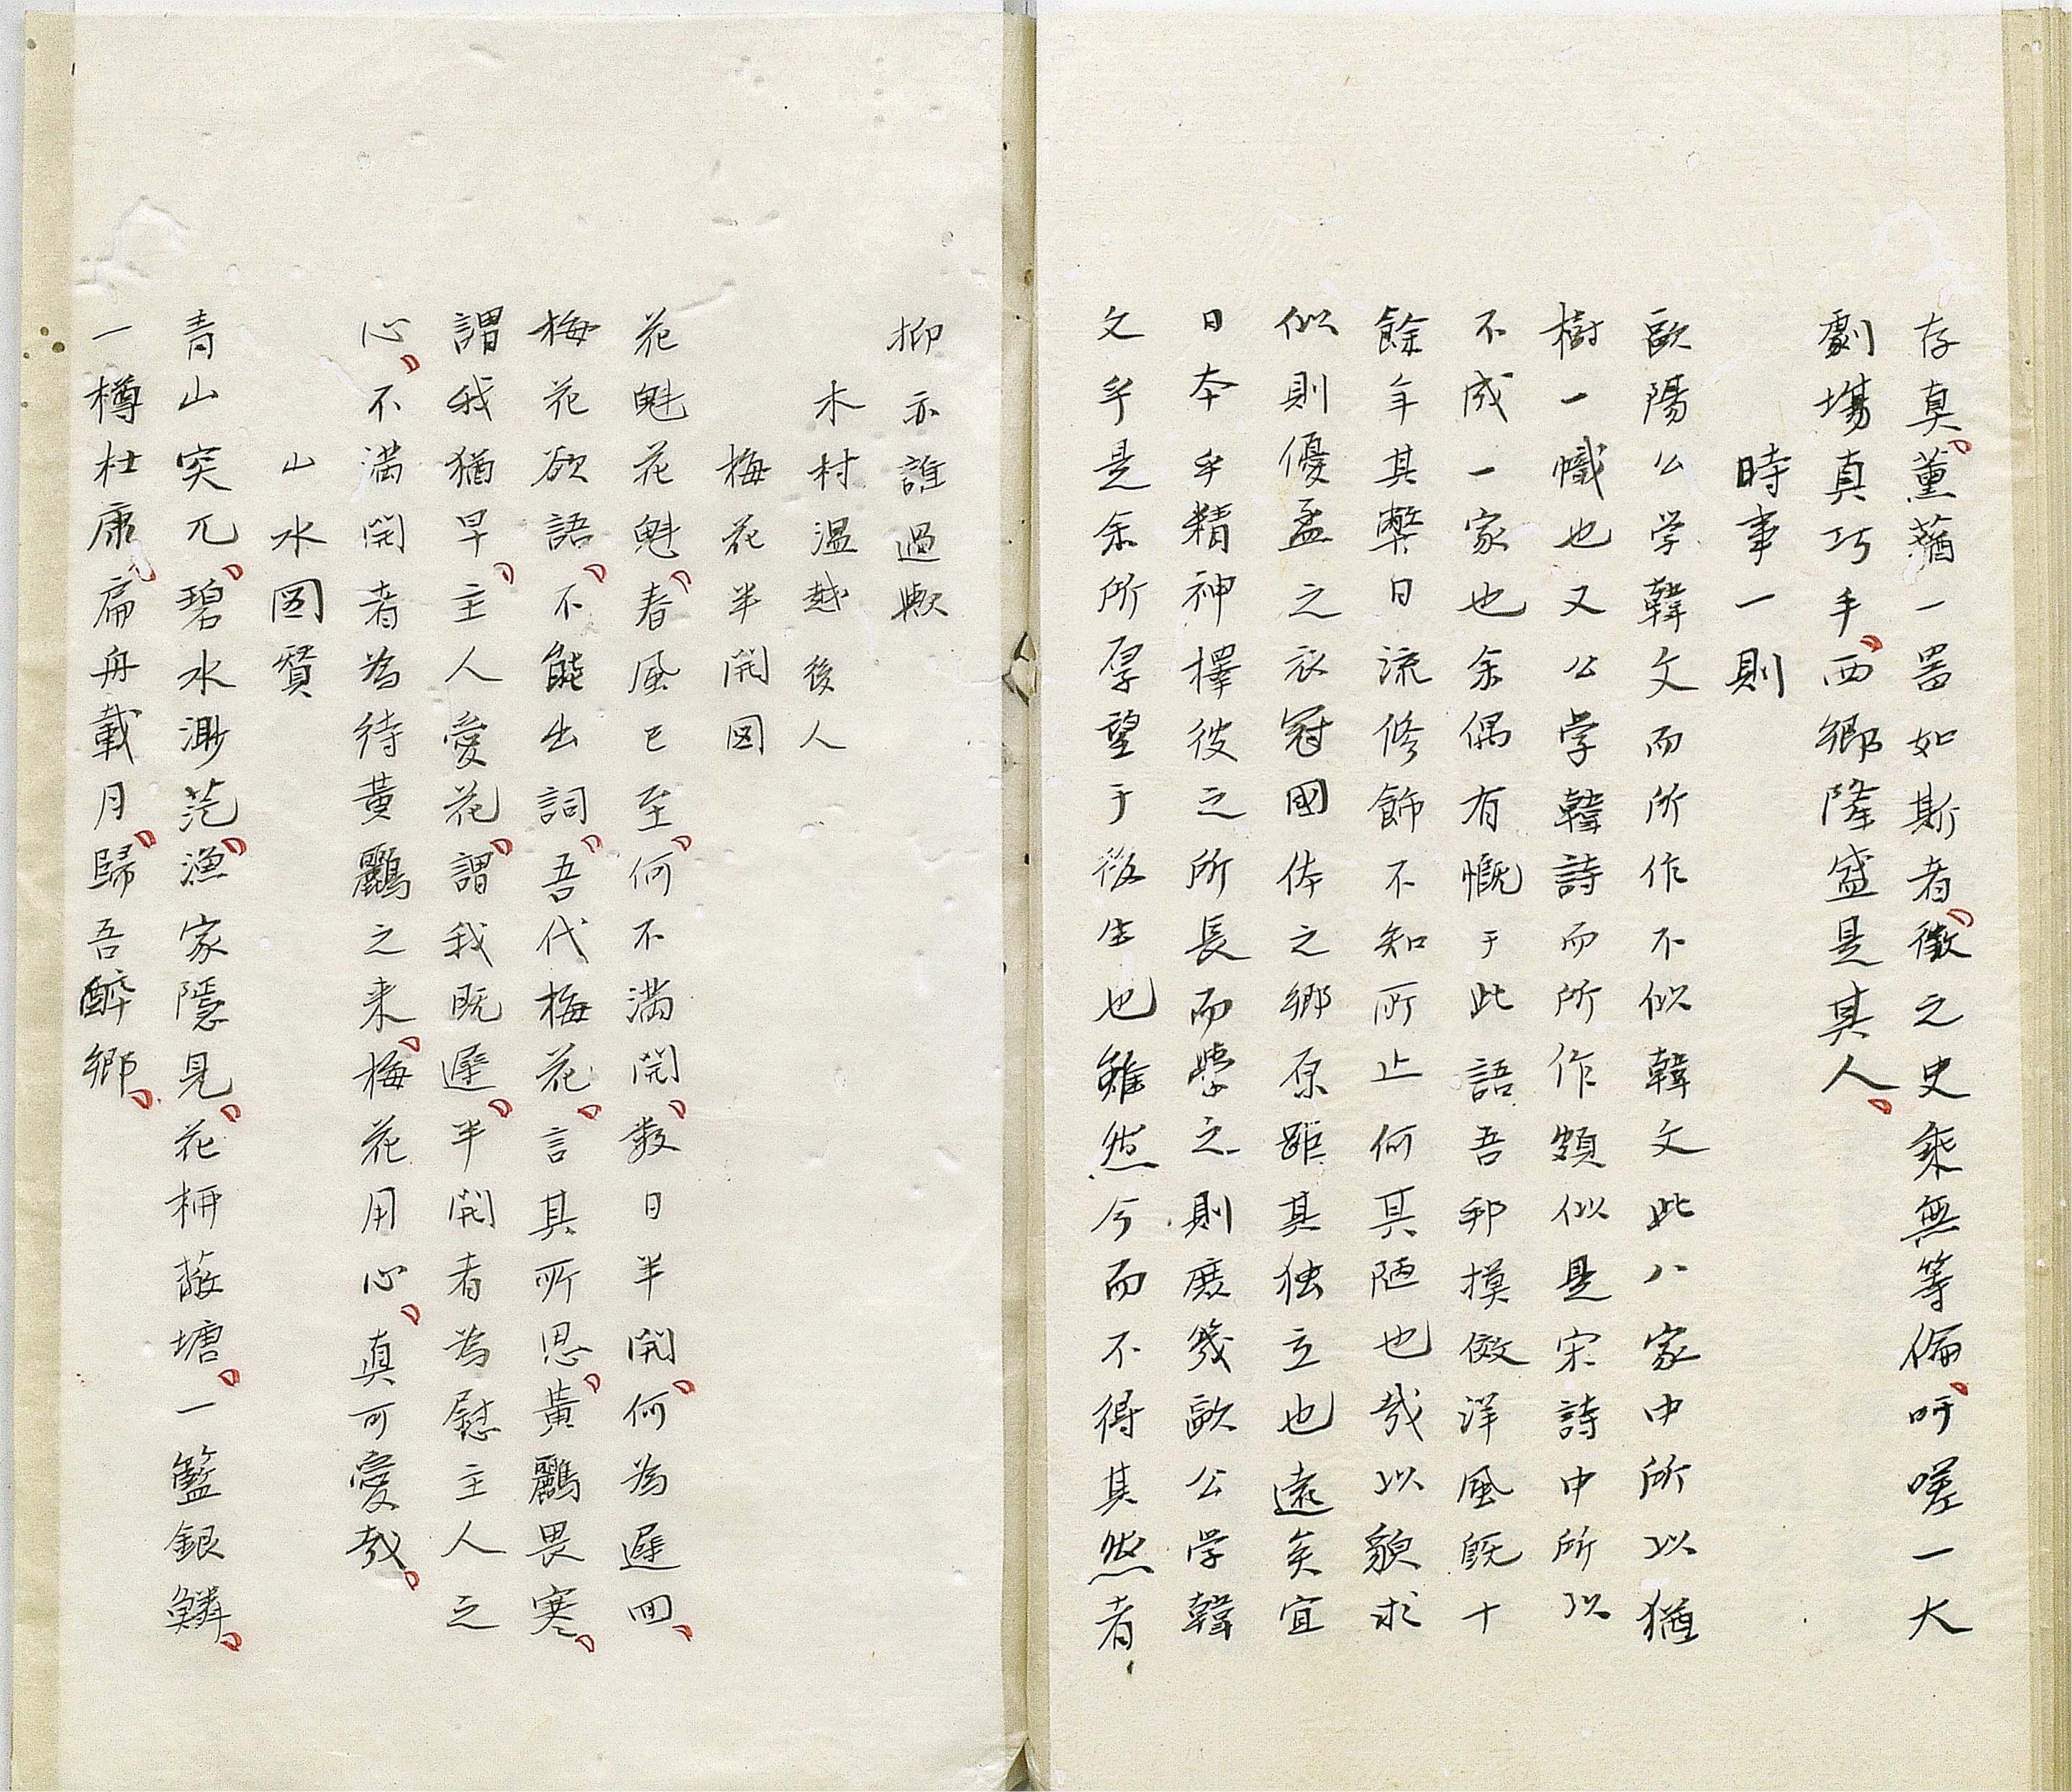 存真、薫蕕一器如斯者、徴之史乘無等倫、吁嗟一大
劇場真巧手、西郷隆盛是其人、
時事一則
歐陽公学韓文而所作不似韓文此八家中所以猶
樹一幟也又公学韓詩而所作頗似是宋詩中所以
不成一家也余偶有慨于此語吾邦摸倣洋風既十
餘年其弊日流修飾不知所止何其陋也哉以貌求
似則優孟之衣冠國体之郷原距其独立也遠矣宜
日本乎精神擇彼之所長而學之則庶幾歐公学韓
文乎是余所厚望于後生也雖然今而不得其然者、
抑亦誰過歟
木村温越後人
梅花半開図
花魁花魁、春風已至、何不満開、数日半開、何為遲回、
梅花欲語、不能出詞、吾代梅花、言其所思、黄鸝畏寒、
謂我猶早、主人愛花、謂我既遲、半開者為慰主人之
心、不満開者為待黄鸝之来、梅花用心、真可愛哉、
山水図賛
青山突兀、碧水渺茫、漁家隱見、花柳蔽塘、一籃銀鱗、
一樽杜康、扁舟載月、歸吾醉郷、